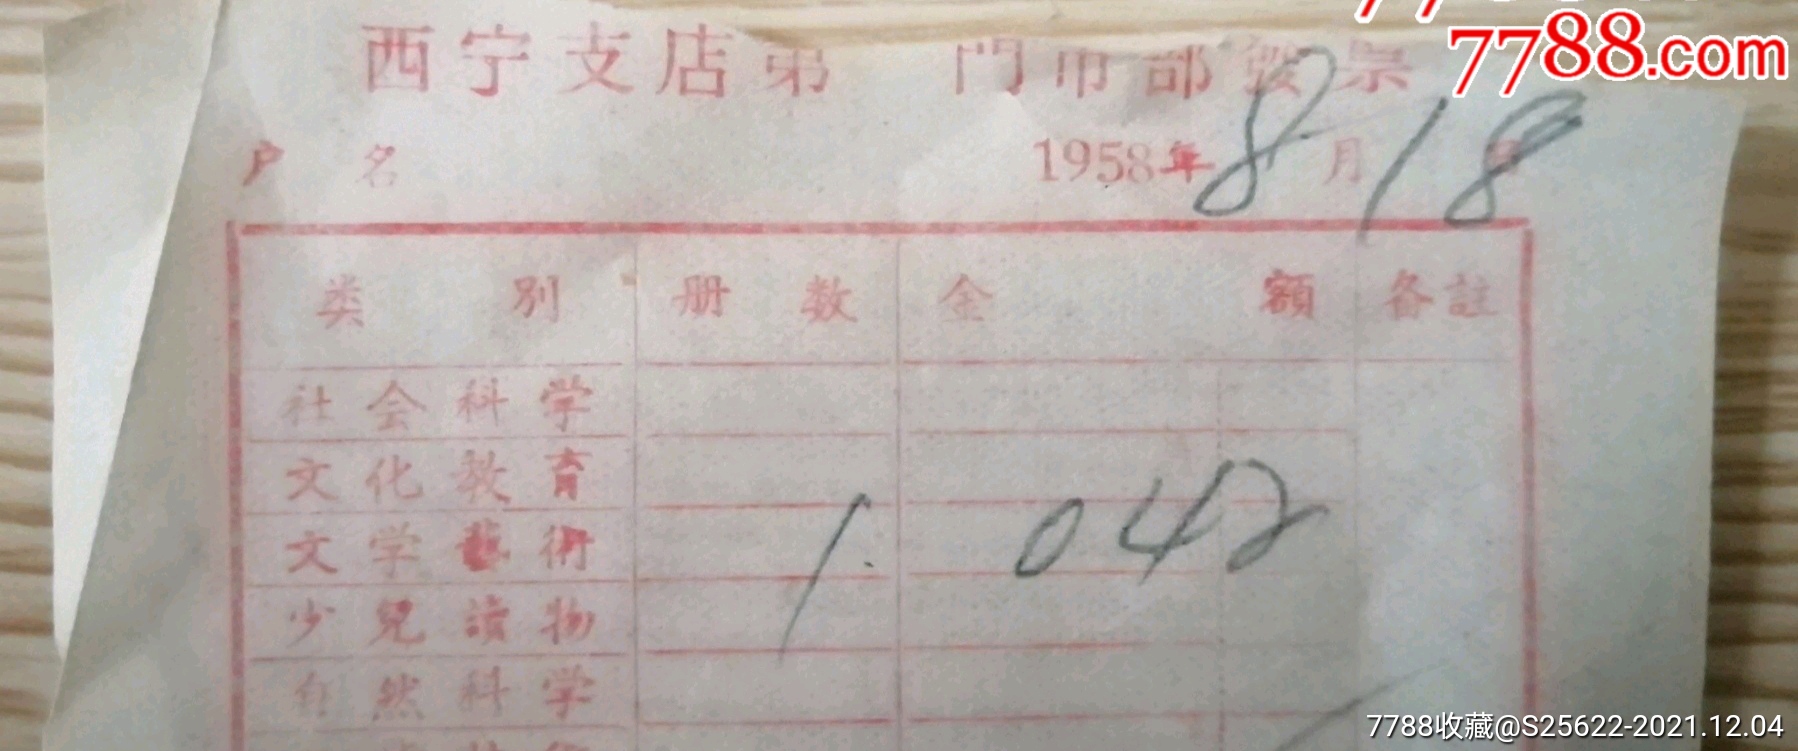 7788.com
西宁支店第 門市部發票
户 名 1958年8月18日
类 別 册 数 金 額 备註
社会科学
文化教育
文学藝術 1. 042
少兒讀物
自然科学
7788收藏@S25622-2021.12.04